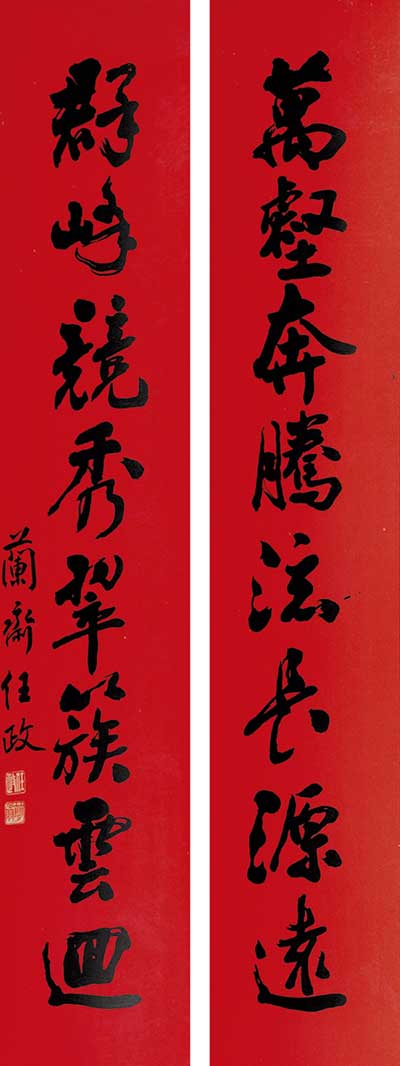 萬壑奔騰流長源遠
群峰競秀翠簇雲迴
蘭齋任政